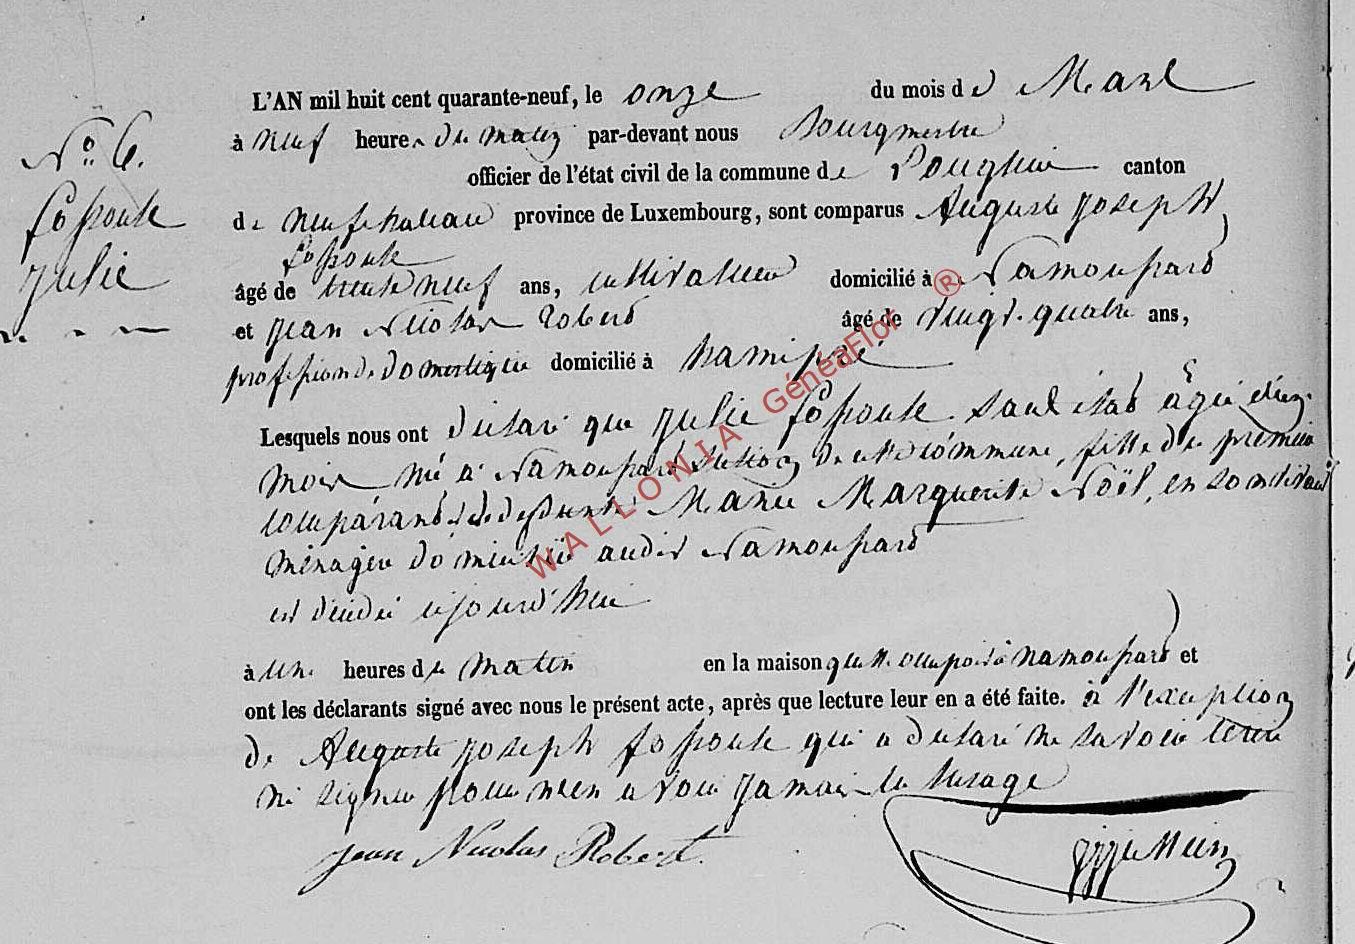 N° 6.
Lopoute
Julie
L'AN mil huit cent quarante-neuf, le onze du mois de Mars
à neuf heures du matin par-devant nous Bourgmestre
officier de l'état civil de la commune de canton
de neufchateau province de Luxembourg, sont comparus Auguste Joseph
Lopoute
âgé de trente neuf ans, cultivateur domicilié à Namoupard
et Jean Nicolas Robert âgé de vingt-quatre ans,
profession de domestique domicilié à namipré
Lesquels nous ont déclaré que Julie Lopoute soeul etat agée d'un
mois né à Namoupard section de cette commune, fille du premier
comparant et de defunte Marie Marguerite Noël, en son vivant
ménagère domiciliée audit Namoupard
est décédée cejourd'hui
à une heures du matin en la maison qu'elle occupoit à namoupard et
ont les déclarants signé avec nous le présent acte, après que lecture leur en a été faite. à l'exception
de Auguste Joseph Lopoute qui a déclaré ne savoir écrire
ni signer pour n'en avoir jamais eu l'usage
Jean Nicolas Robert.
WALLONIA GénéaFlor ®